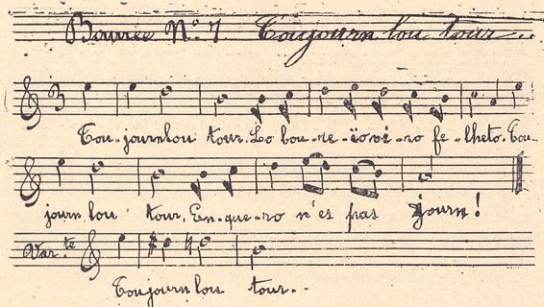 Bourrée N.º 7 Toujourn lou tour..
3
Tou-journ lou tour. Lo bou-re-ïo vi-ro fe-lheto. Tou-
journ lou tour, En-que-ro n'es pas journ!
Var.te
Toujourn lou tour..